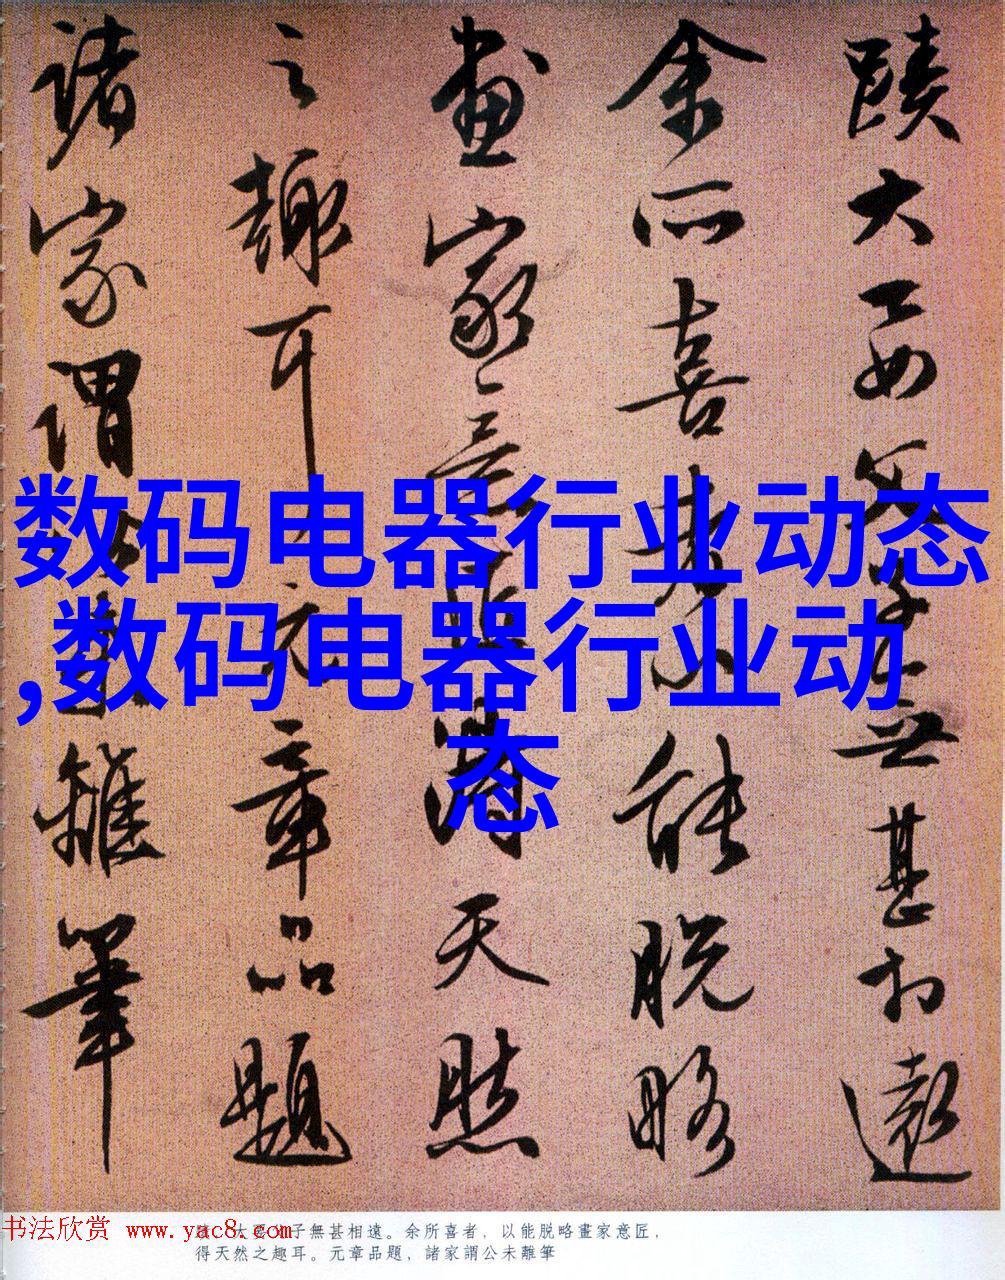 蹟大要父子無甚相遠
余所喜者以能脱略
畫家意匠得天然
之趣耳元章品題
諸家謂公未離筆
数码电器行业动态
,数码电器行业动
态
书法欣赏 www.yac8.com
大要父子無甚相遠。余所喜者，以能脱略畫家意匠，
得天然之趣耳。元章品題，諸家謂公未離筆